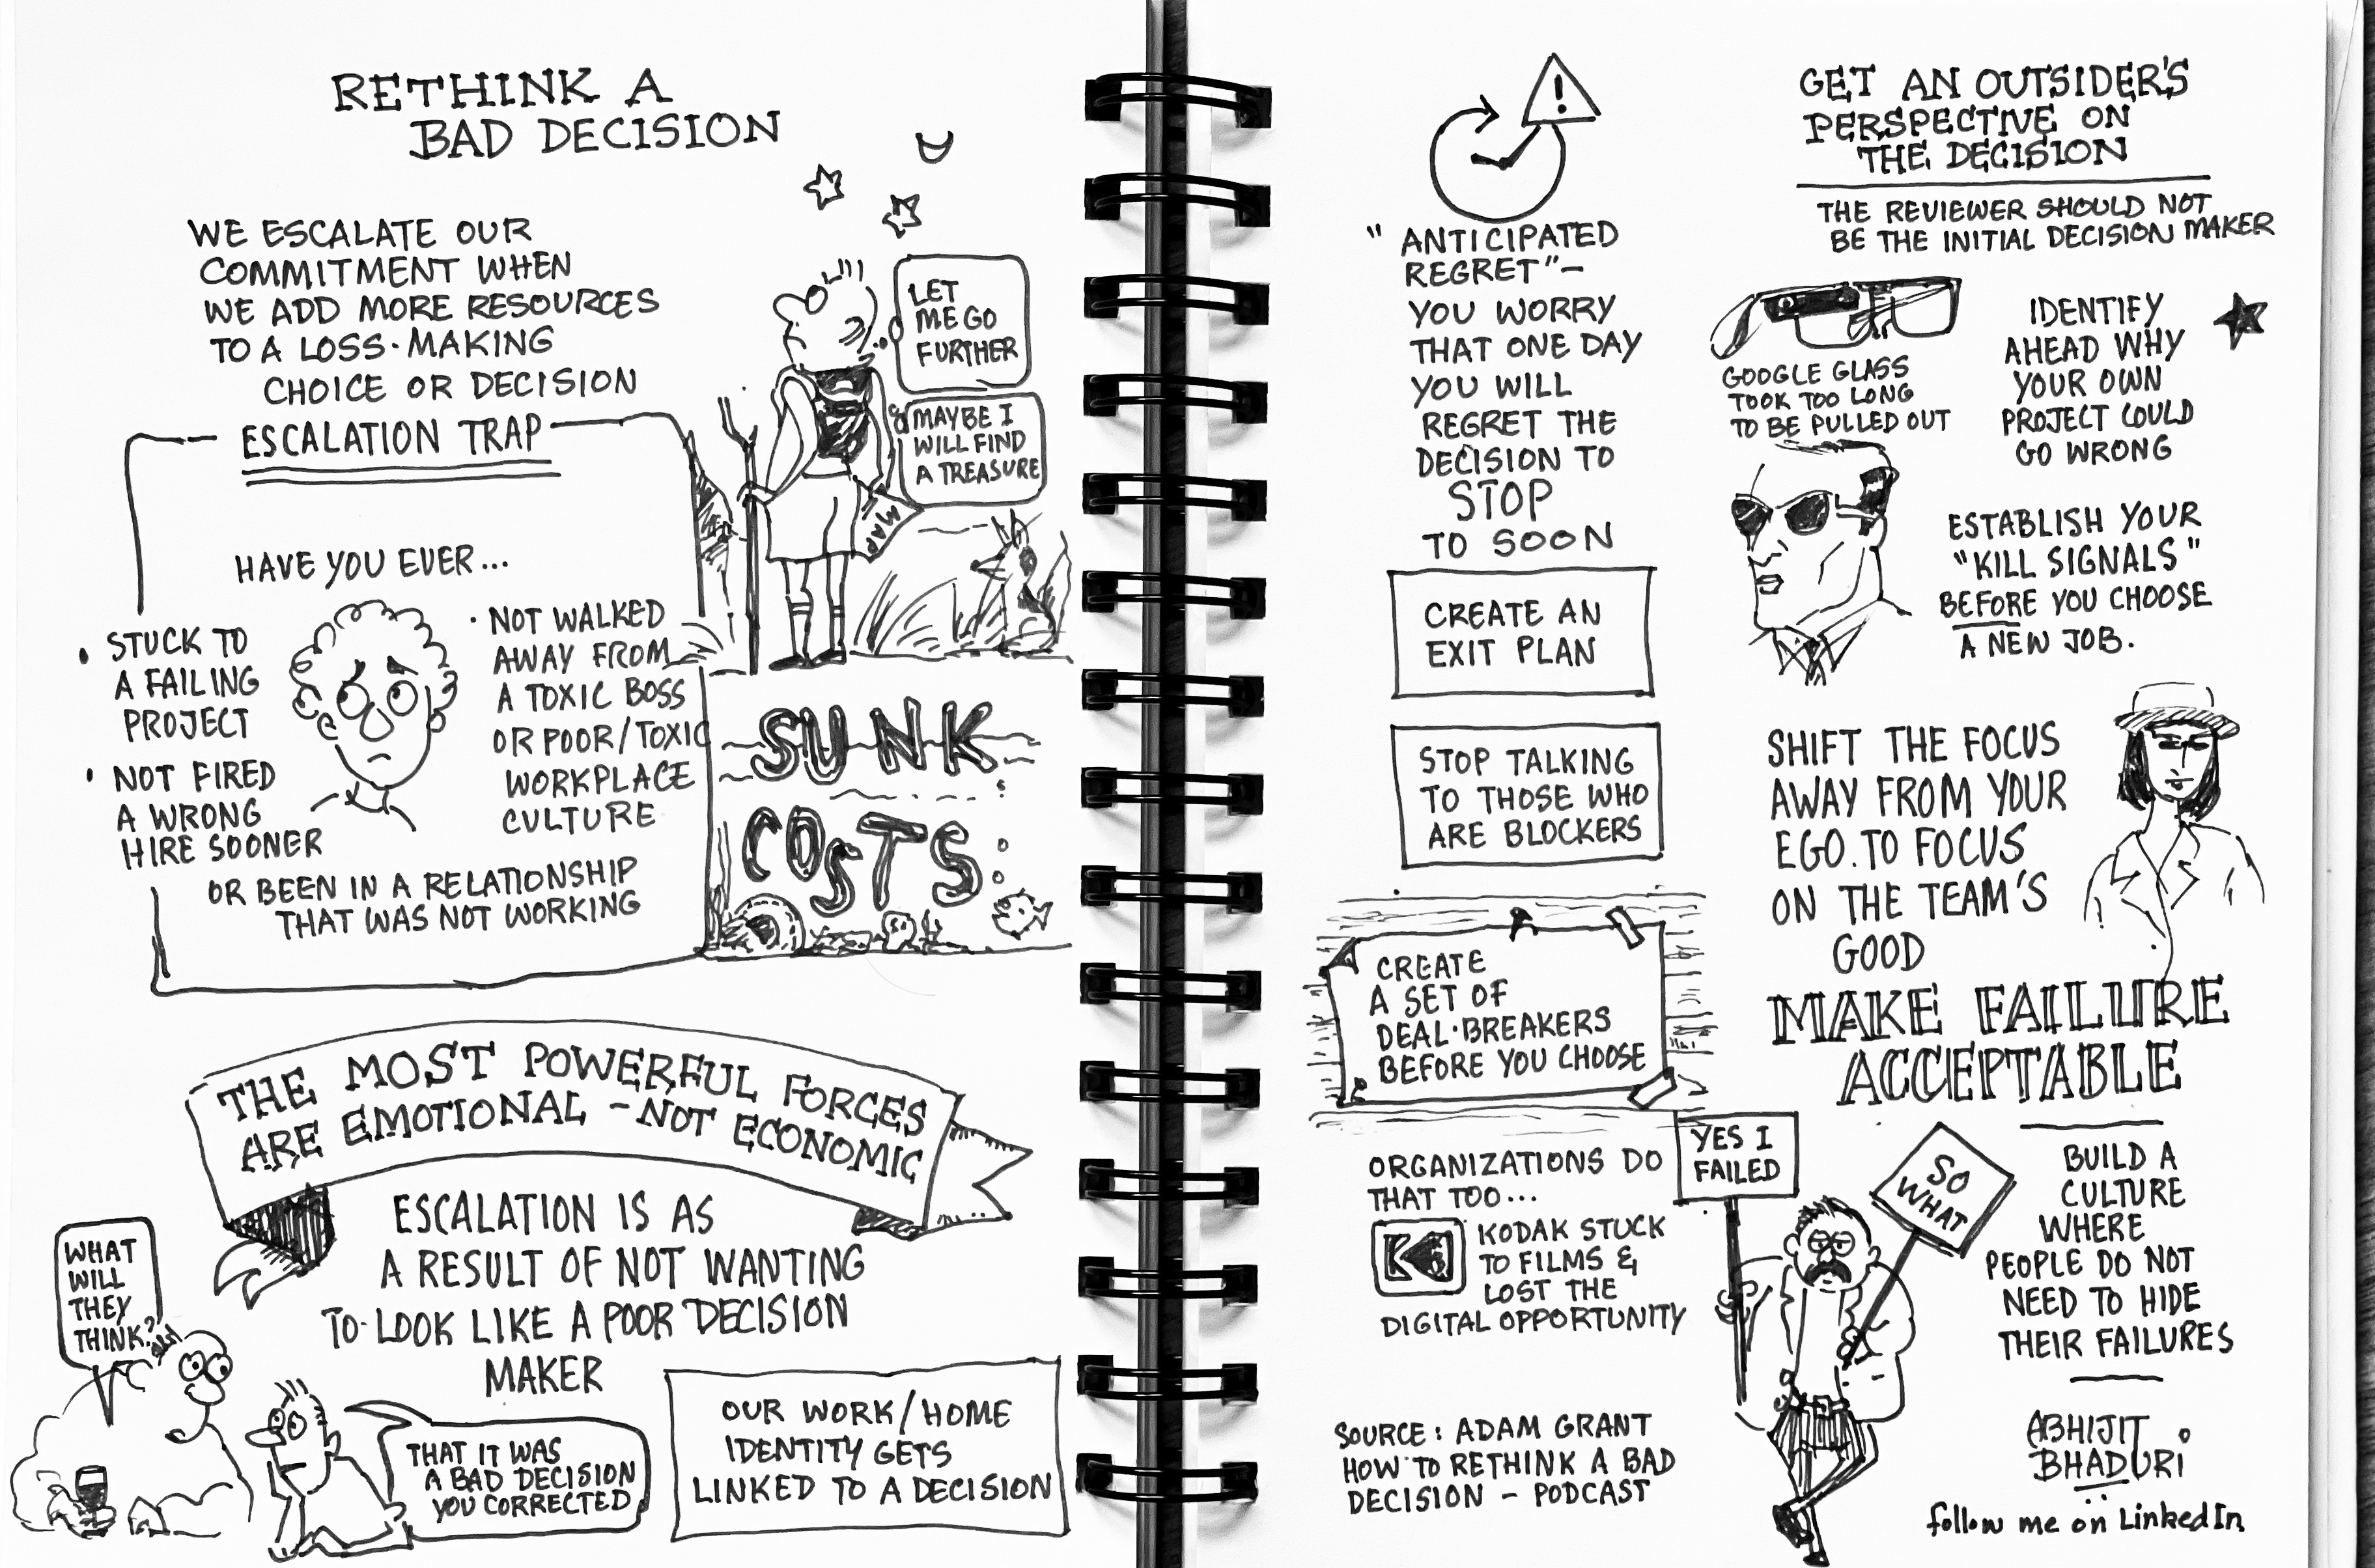 RETHINK A
BAD DECISION
WE ESCALATE OUR
COMMITMENT WHEN
WE ADD MORE RESOURCES
TO A LOSS·MAKING
CHOICE OR DECISION
ESCALATION TRAP
HAVE YOU EVER...
· STUCK TO
A FAILING
PROJECT
· NOT FIRED
A WRONG
HIRE SOONER
· NOT WALKED
AWAY FROM
A TOXIC BOSS
OR POOR/TOXIC
WORKPLACE
CULTURE
OR BEEN IN A RELATIONSHIP
THAT WAS NOT WORKING
LET
ME GO
FURTHER
MAYBE I
WILL FIND
A TREASURE
MAP
SUNK
COSTS
THE MOST POWERFUL FORCES
ARE EMOTIONAL - NOT ECONOMIC
ESCALATION IS AS
A RESULT OF NOT WANTING
TO LOOK LIKE A POOR DECISION
MAKER
WHAT
WILL
THEY
THINK?
THAT IT WAS
A BAD DECISION
YOU CORRECTED
OUR WORK/HOME
IDENTITY GETS
LINKED TO A DECISION
!
"ANTICIPATED
REGRET"-
YOU WORRY
THAT ONE DAY
YOU WILL
REGRET THE
DECISION TO
STOP
TO SOON
CREATE AN
EXIT PLAN
STOP TALKING
TO THOSE WHO
ARE BLOCKERS
CREATE
A SET OF
DEAL·BREAKERS
BEFORE YOU CHOOSE
ORGANIZATIONS DO
THAT TOO...
K
KODAK STUCK
TO FILMS &
LOST THE
DIGITAL OPPORTUNITY
SOURCE: ADAM GRANT
HOW TO RETHINK A BAD
DECISION - PODCAST
GET AN OUTSIDER'S
PERSPECTIVE ON
THE DECISION
THE REVIEWER SHOULD NOT
BE THE INITIAL DECISION MAKER
GOOGLE GLASS
TOOK TOO LONG
TO BE PULLED OUT
IDENTIFY
AHEAD WHY
YOUR OWN
PROJECT COULD
GO WRONG
ESTABLISH YOUR
"KILL SIGNALS"
BEFORE YOU CHOOSE
A NEW JOB.
SHIFT THE FOCUS
AWAY FROM YOUR
EGO. TO FOCUS
ON THE TEAM'S
GOOD
MAKE FAILURE
ACCEPTABLE
YES I
FAILED
SO
WHAT
BUILD A
CULTURE
WHERE
PEOPLE DO NOT
NEED TO HIDE
THEIR FAILURES
ABHIJIT
BHADURI
follow me on LinkedIn